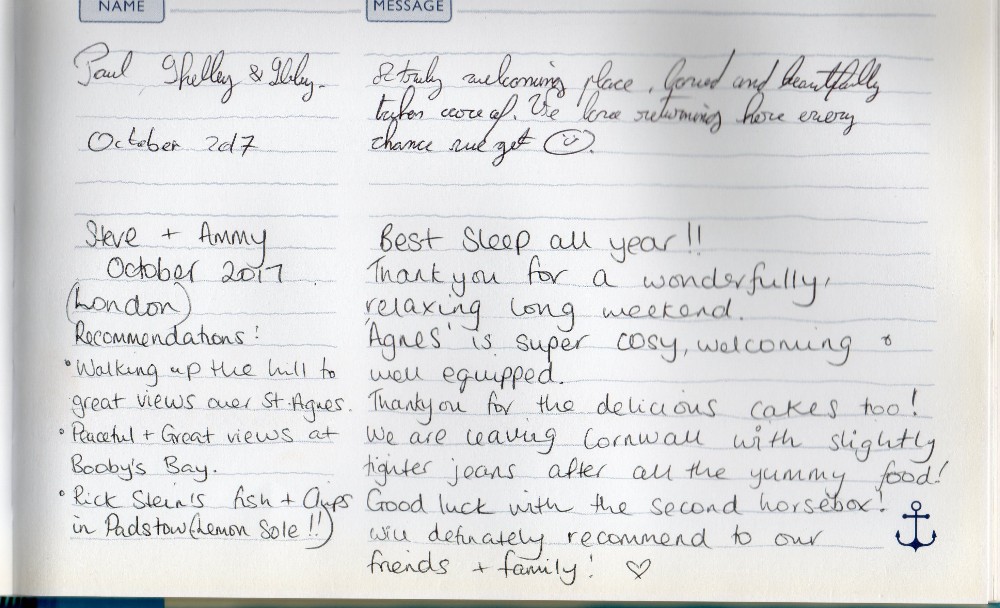 NAME
MESSAGE
Paul Shelley & Ibby.
October 2017
A truly welcoming place. Loved and beautifully
taken care of. We love returning here every
chance we get
Steve + Ammy
October 2017
(London)
Recommendations:
• Walking up the hill to
great views over St. Agnes.
• Peaceful + Great views at
Booby's Bay.
• Rick Stein's fish + Chips
in Padstow (Lemon Sole!!)
Best Sleep all year!!
Thank you for a wonderfully,
relaxing long weekend.
'Agnes' is super cosy, welcoming &
well equipped.
Thankyou for the delicious cakes too!
We are leaving Cornwall with slightly
tighter jeans after all the yummy food!
Good luck with the second horsebox!
will definately recommend to our
friends + family! ♡